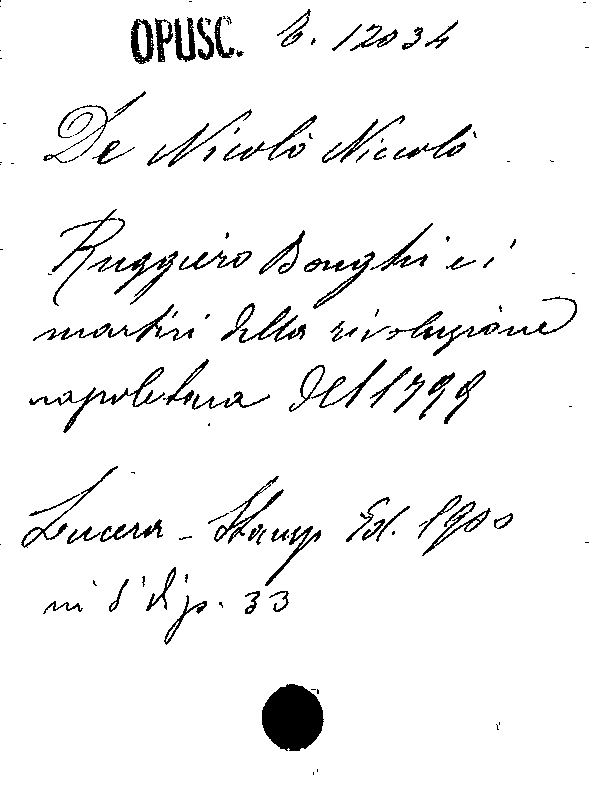 OPUSC. B. 12034
De Nicolò Niccolò
Ruggiero Bonghi e i
martiri della rivoluzione
napoletana del 1799
Lucera - Stamp Ed. 1900
in 8° di p. 33